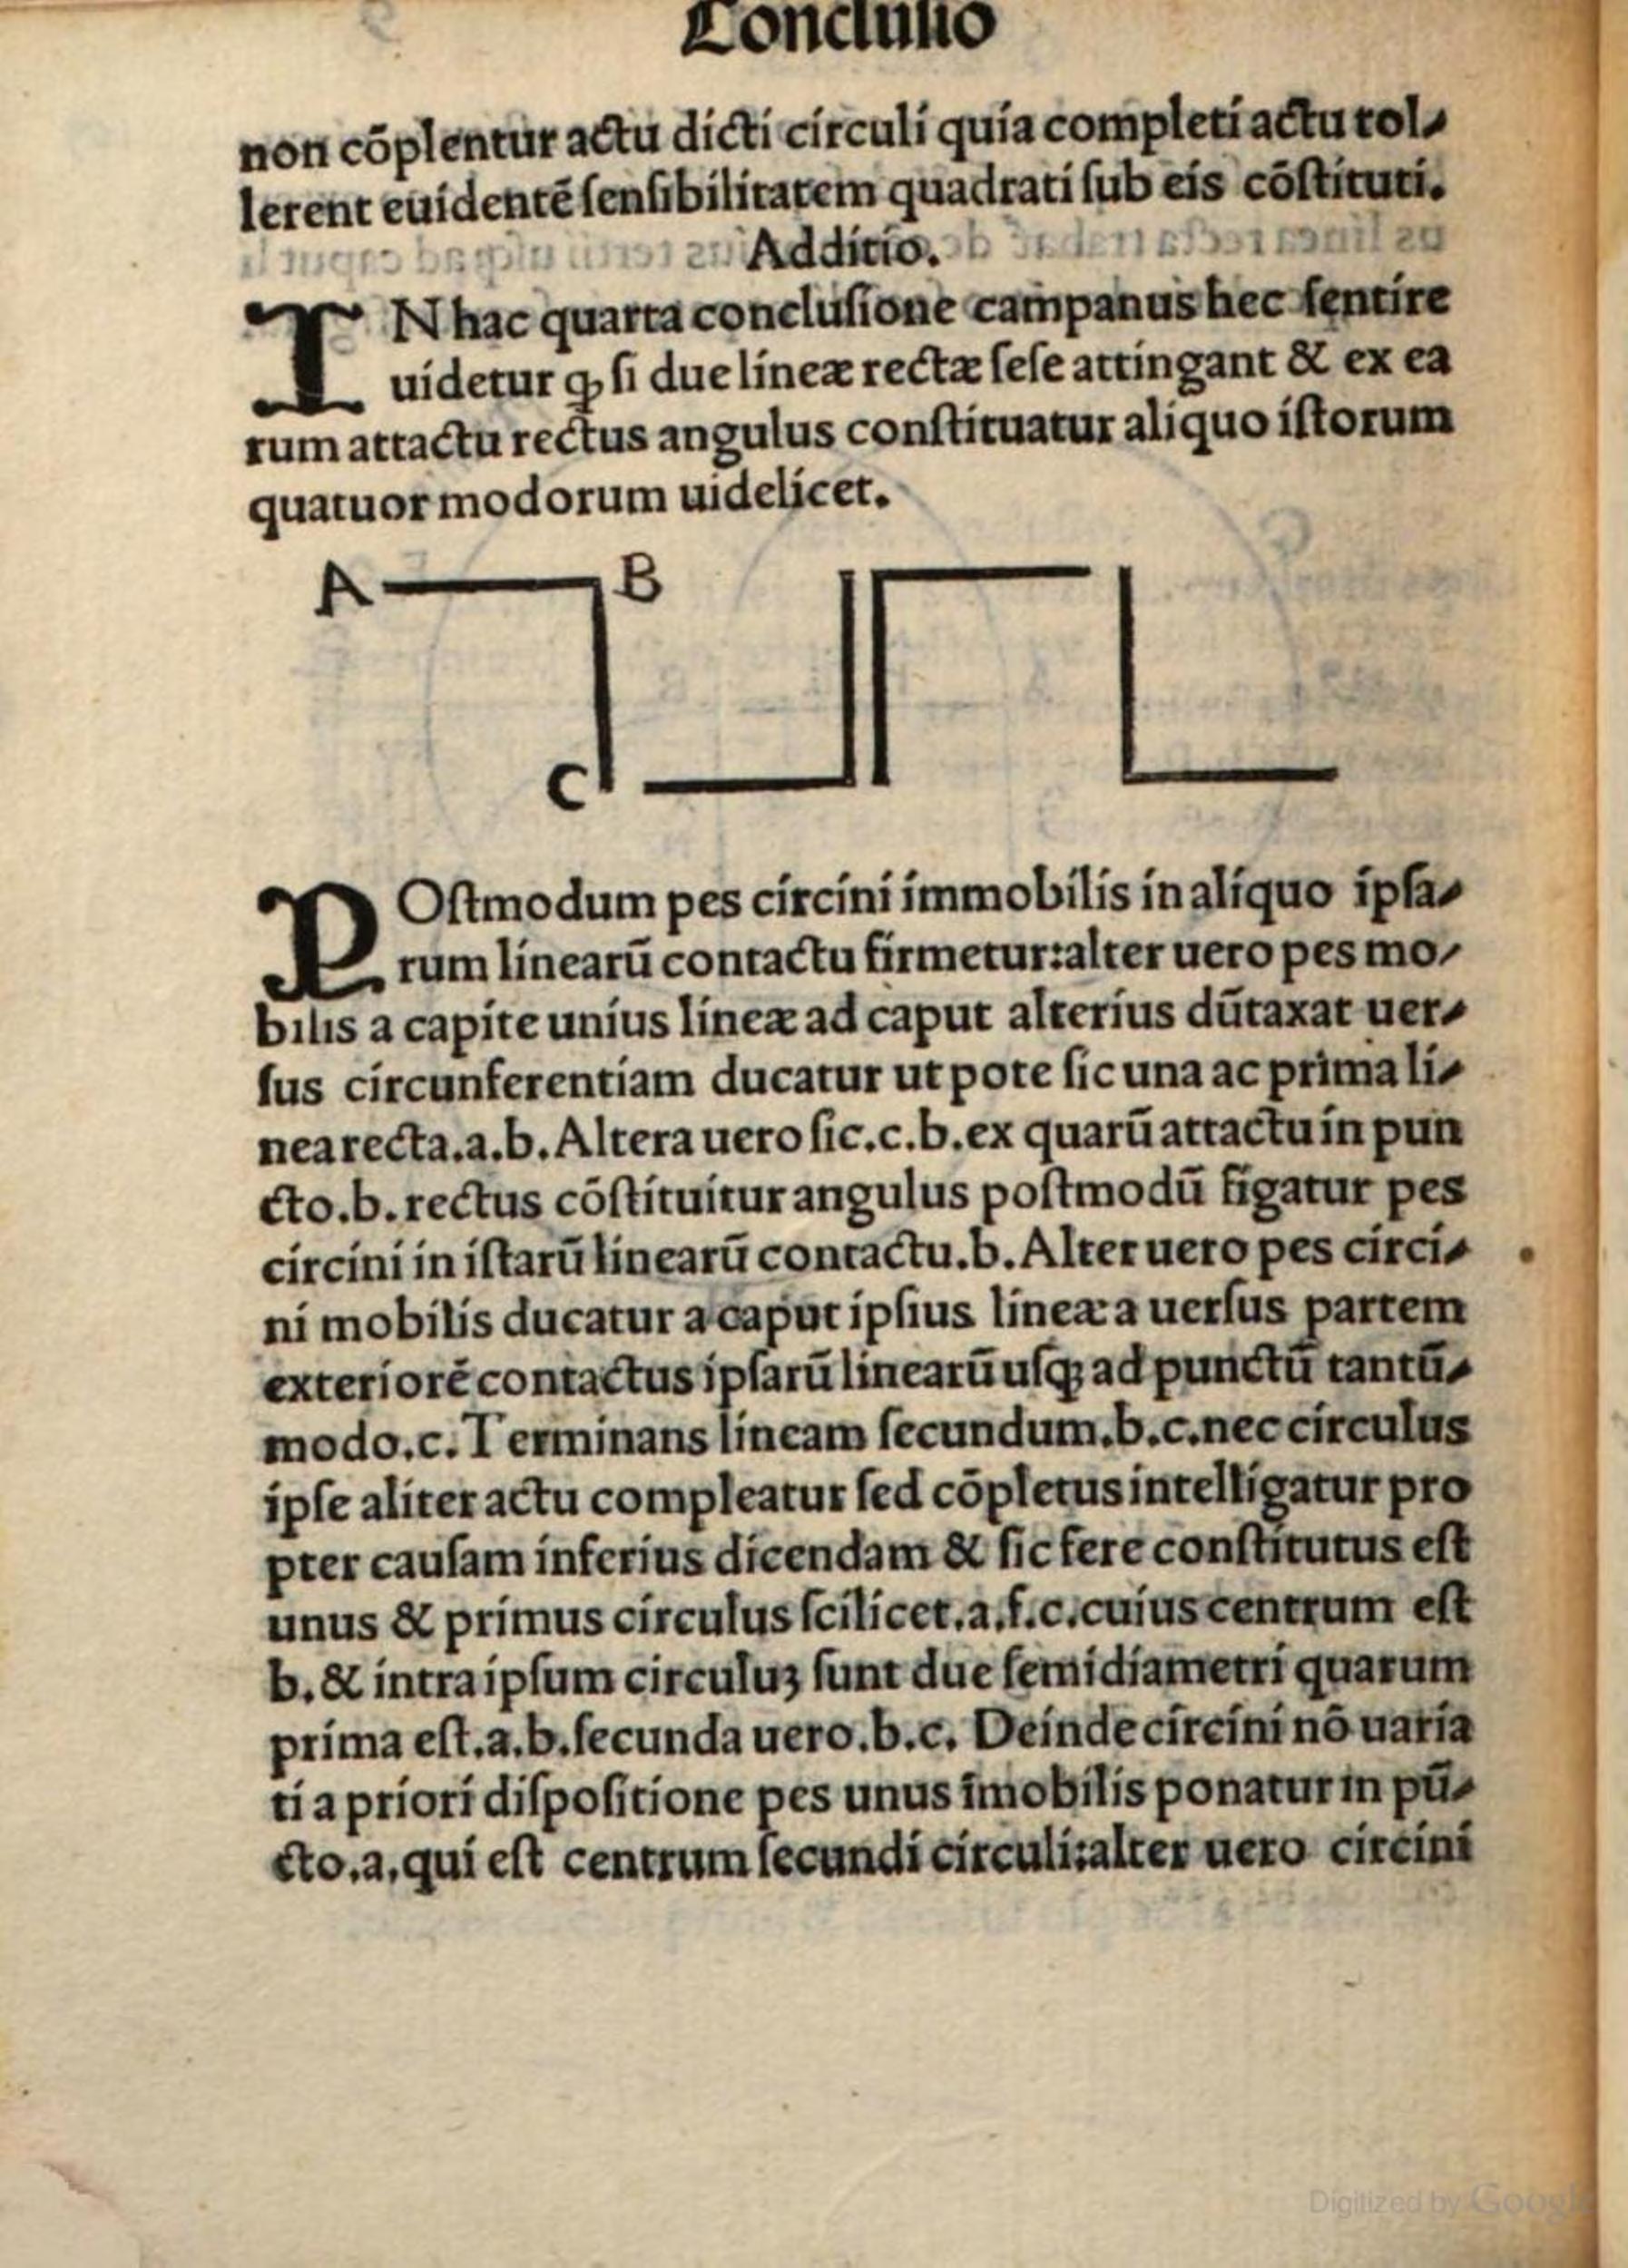 Conclusio
non cōplentur actu dicti circuli quia completi actu tol-
lerent euidentē ſenſibilitatem quadrati ſub eis cōſtituti.
Additio.
IN hac quarta concluſione campanus hec ſentire
uidetur ꝙ ſi due lineæ rectæ ſeſe attingant & ex ea
rum attactu rectus angulus conſtituatur aliquo iſtorum
quatuor modorum uidelicet.
A B
C
POſtmodum pes circini immobilis in aliquo ipſa-
rum linearū contactu firmetur:alter uero pes mo-
bilis a capite unius lineæ ad caput alterius dūtaxat uer-
ſus circunferentiam ducatur ut pote ſic una ac prima li-
nea recta.a.b.Altera uero ſic.c.b.ex quarū attactu in pun
cto.b.rectus cōſtituitur angulus poſtmodū figatur pes
circini in iſtarū linearū contactu.b.Alter uero pes circi-
ni mobilis ducatur a caput ipſius lineæ a uerſus partem
exteriorē contactus ipſarū linearū uſqꝫ ad punctū tantū-
modo.c.Terminans lineam ſecundum.b.c.nec circulus
ipſe aliter actu compleatur ſed cōpletus intelligatur pro
pter cauſam inferius dicendam & ſic fere conſtitutus eſt
unus & primus circulus ſcilicet.a.f.c.cuius centrum eſt
b.& intra ipſum circuluꝫ ſunt due ſemidiametri quarum
prima eſt.a.b.ſecunda uero.b.c. Deinde circini nō uaria
ti a priori diſpoſitione pes unus īmobilis ponatur in pū-
cto.a.qui eſt centrum ſecundi circuli:alter uero circini
Digitized by Google